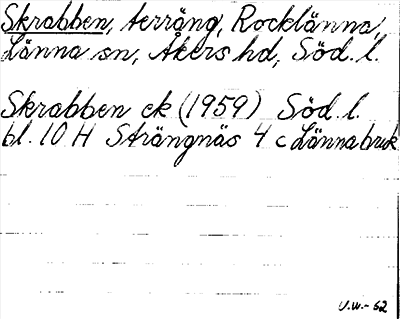 Skrabben, terräng, Rocklänna,
Länna sn, Åkers hd, Söd. l.
Skrabben ek (1959) Söd. l.
bl. 10 H Strängnäs 4 c Länna bruk
U.W.- 62